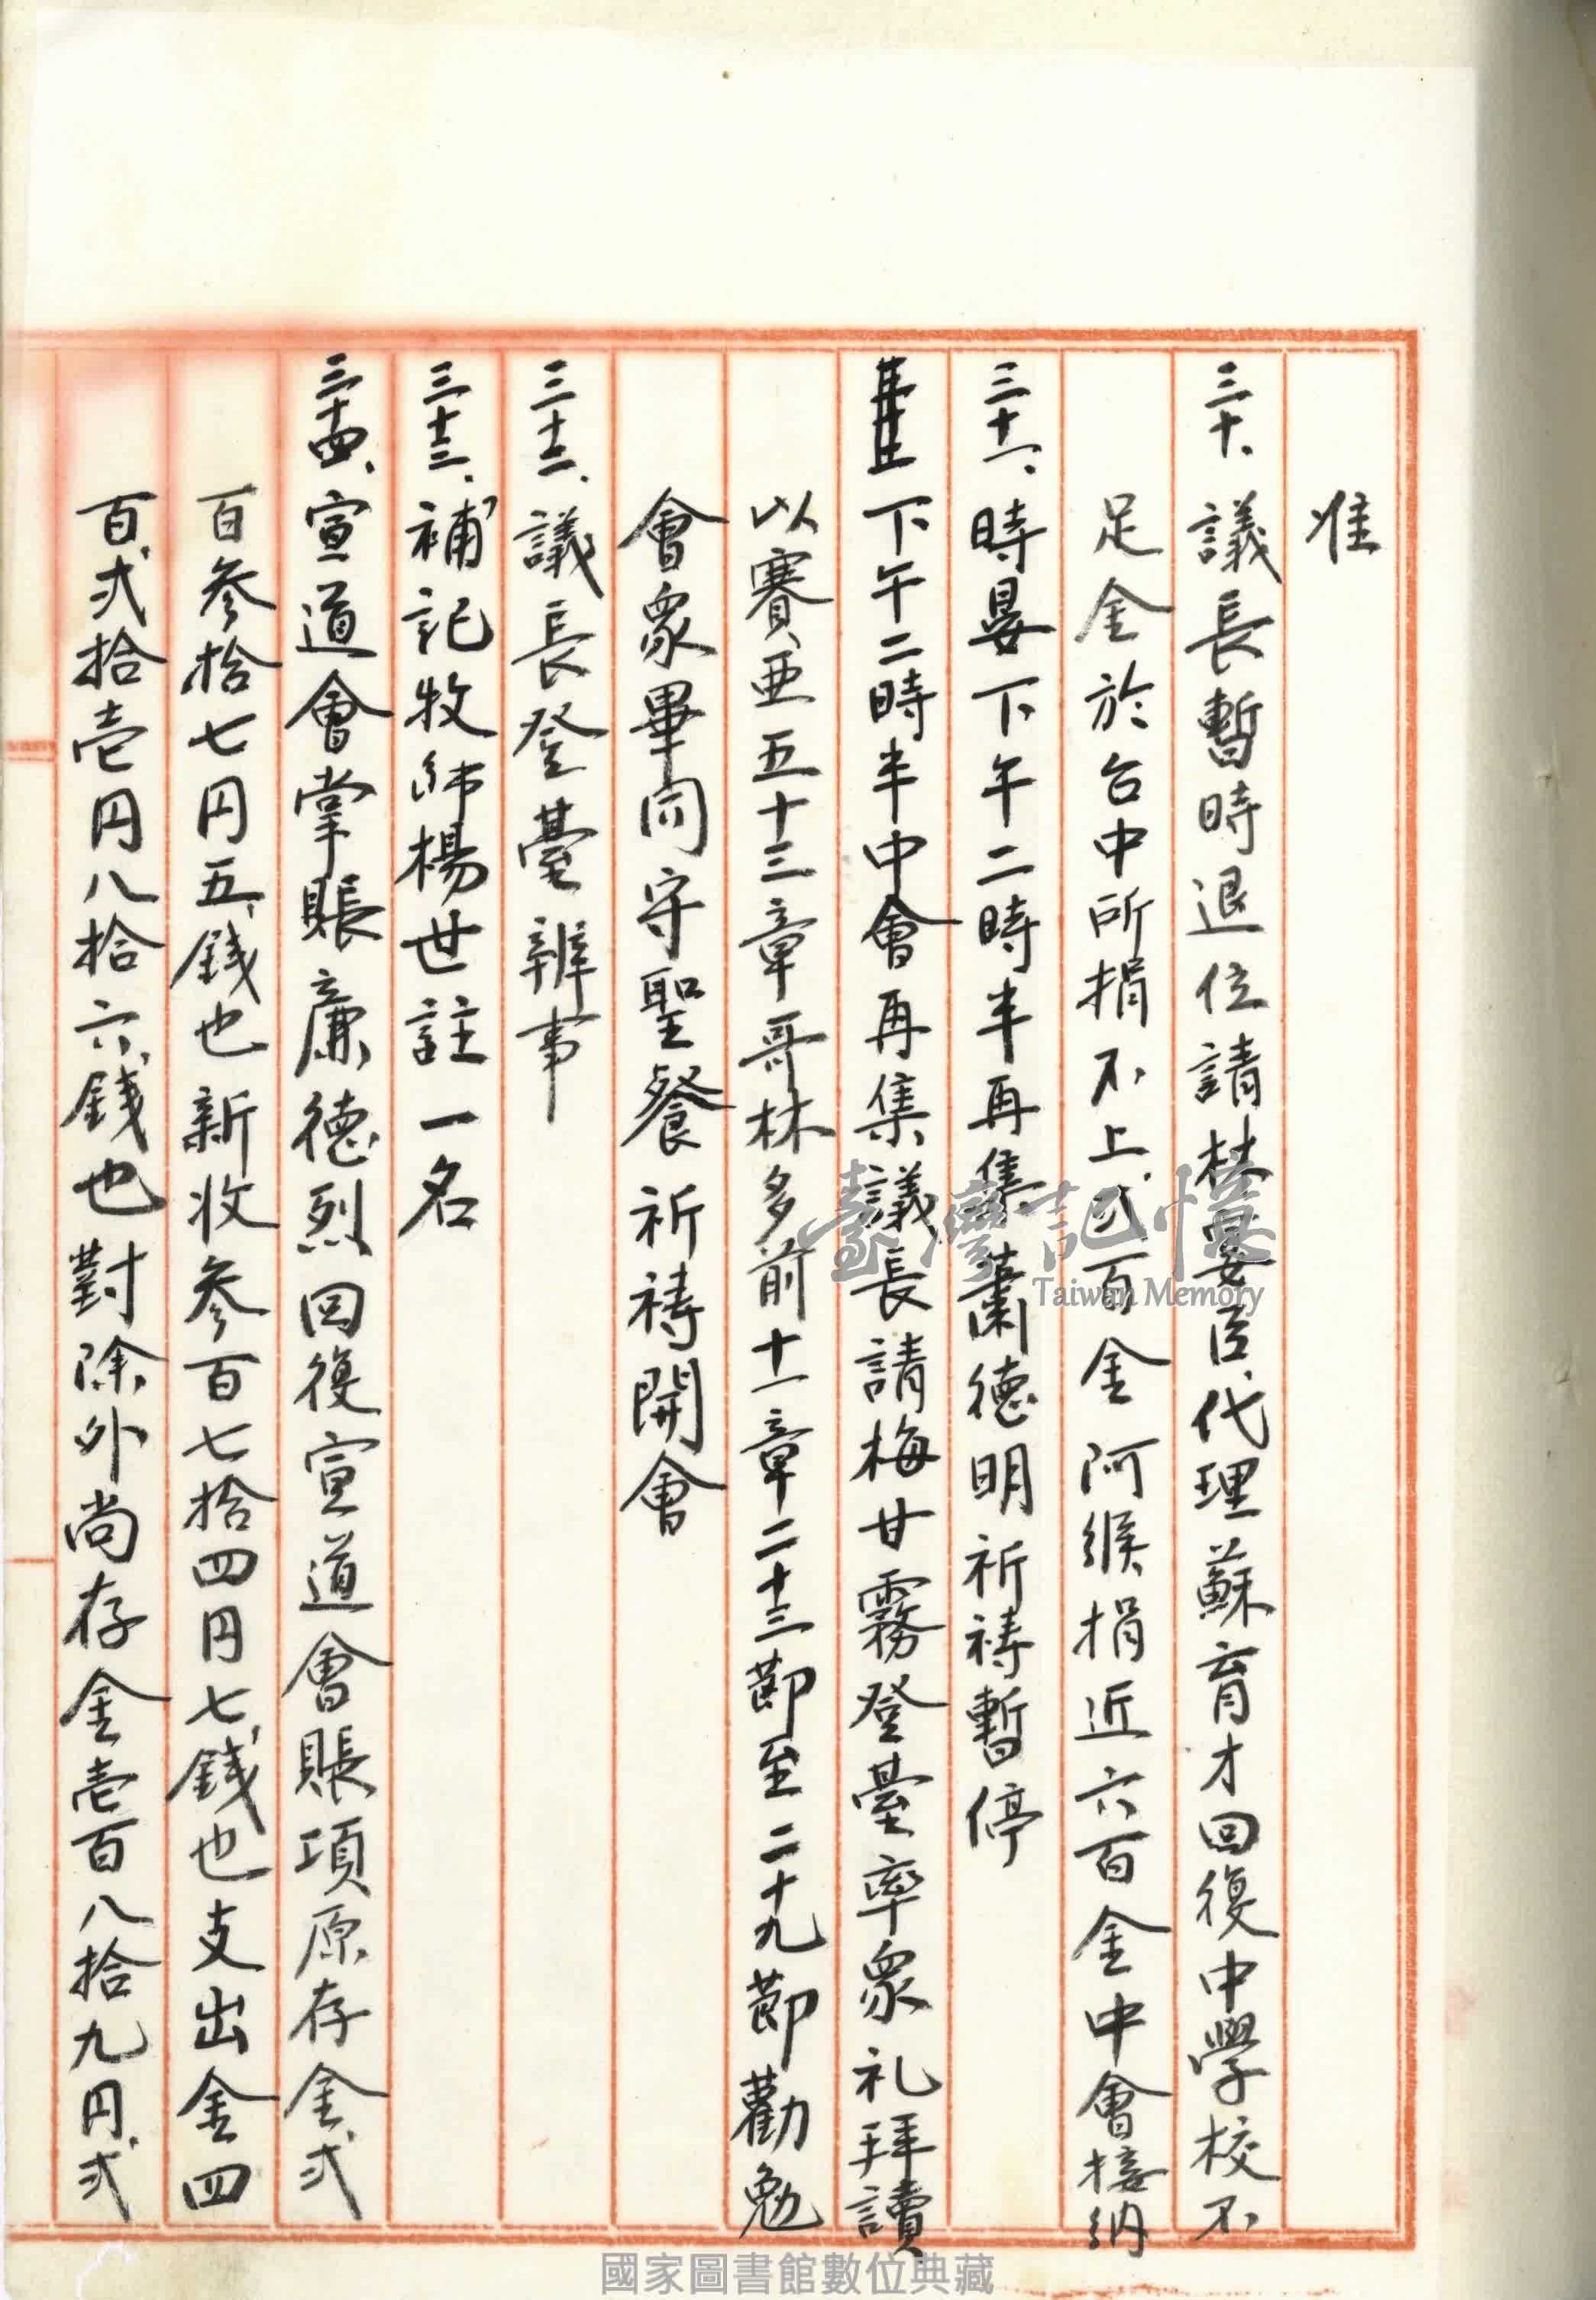 准
三十、議長暫時退位請林晏臣代理蘇育才回復中學校不
足金於台中所捐不上弍百金阿緱捐近六百金中會接納
三十一、時晏下午二時半再集蕭德明祈禱暫停
下午二時半中會再集議長請梅甘霧登臺率衆礼拜讀
以賽亜五十三章哥林多前十一章二十三節至二十九節勸勉
會衆畢同守聖餐祈禱開會
三十二、議長登臺辦事
三十三、補記牧師楊世註一名
三十四、宣道會掌賬廉德烈回復宣道會賬項原存金弍
百参拾七円五錢也新收参百七拾四円七錢也支出金四
百弍拾壱円八拾六錢也對除外尚存金壱百八拾九円弍
臺灣記憶
Taiwan Memory
國家圖書館數位典藏